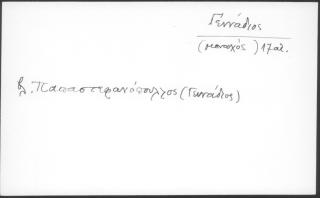 Γεννάδιος
(μοναχός) 17 αι.
βλ. Παπαστεφανόπουλος (Γεννάδιος)